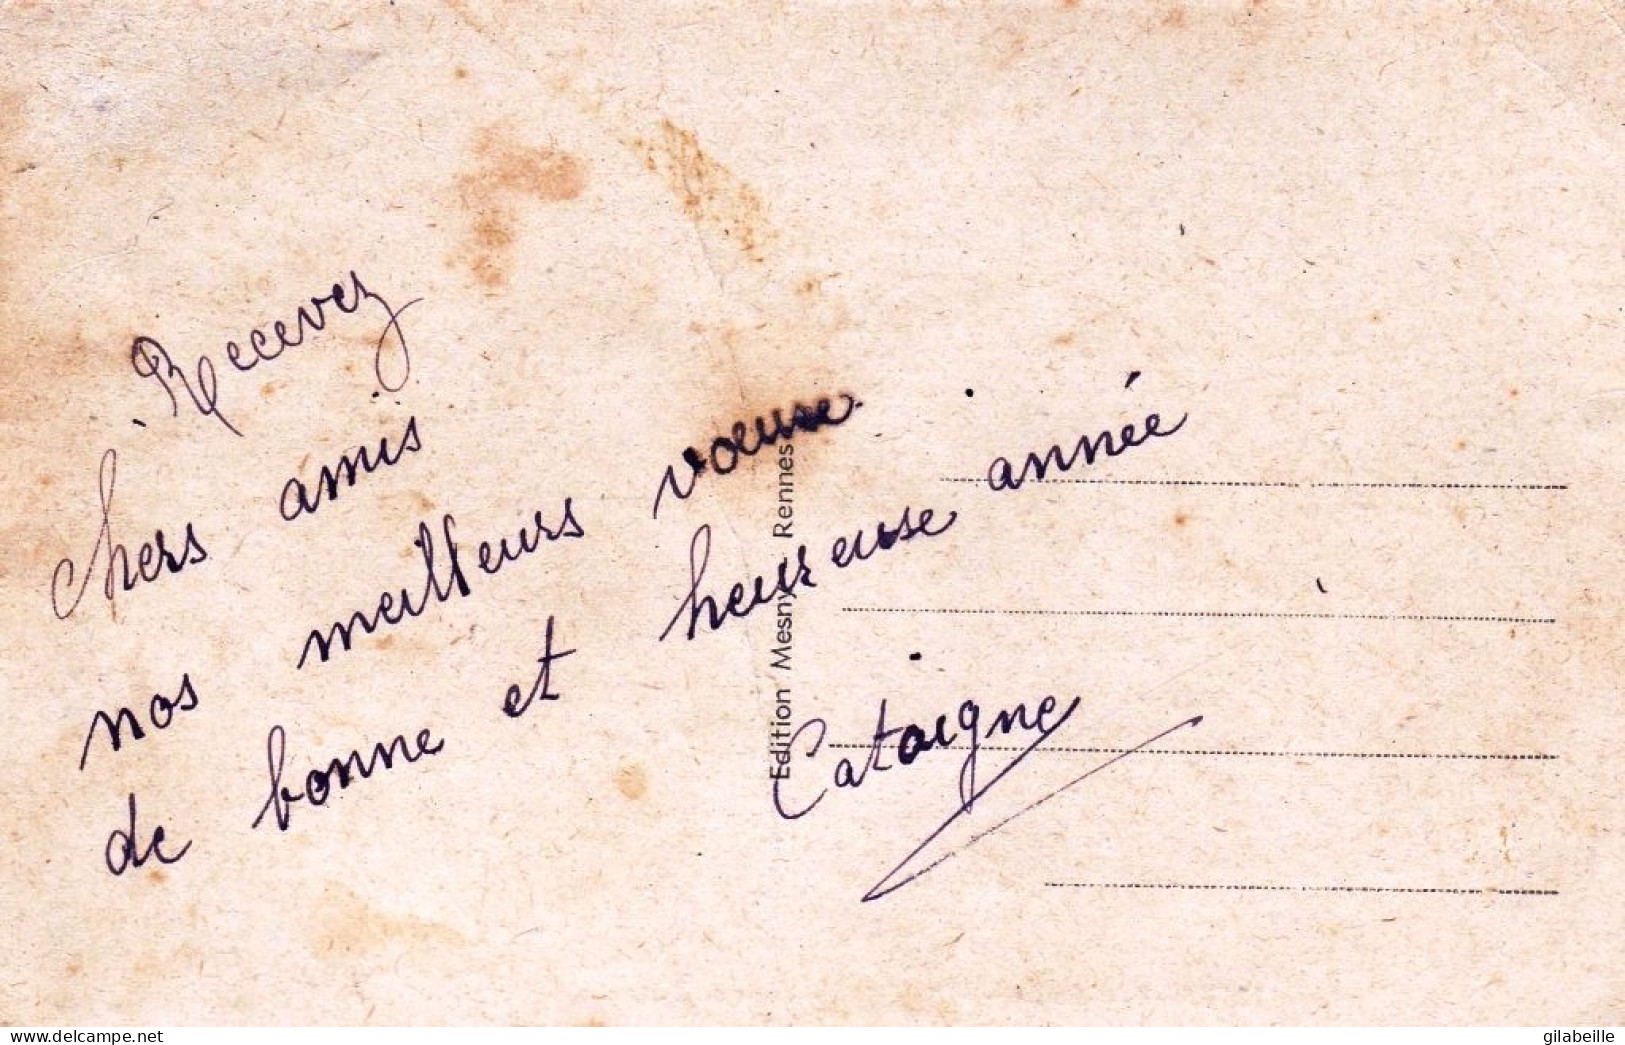 Recevez
chers amis
nos meilleurs vœuse
de bonne et heureuse année
Cataigne
Edition Mesny - Rennes
www.delcampe.net
gilabeille